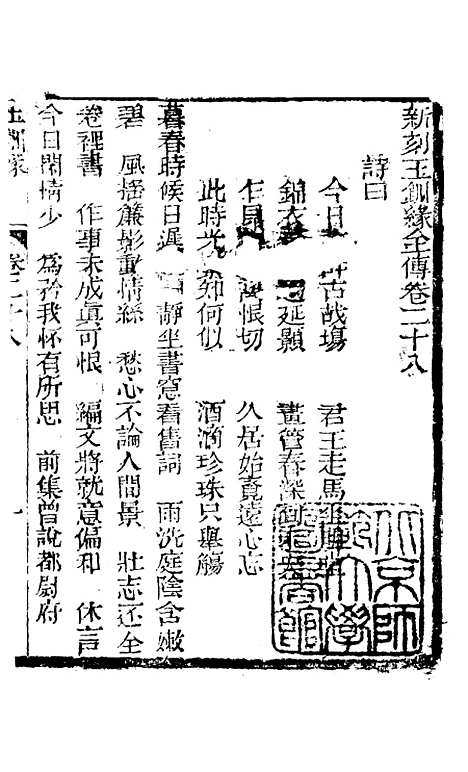 新刻玉釧緣全傳卷二十八
詩曰
今日 古戰塲 君王走馬
錦衣 延顯 畫管春深
乍 恨切 久居始覺遠心志
此時光 如何似 酒滴珍珠只舉觴
暮春時候日遲 靜坐書窓看舊詞 雨洗庭陰含嫩
碧 風搖簾影動情絲 愁心不論人間景 壯志还全
卷裡書 作事未成眞可恨 編文將就意偏和 休言
今日閑情少 為 我怀有所思 前集曾說都尉府
玉釧緣 卷二十八 一
北京師範大學圖書館